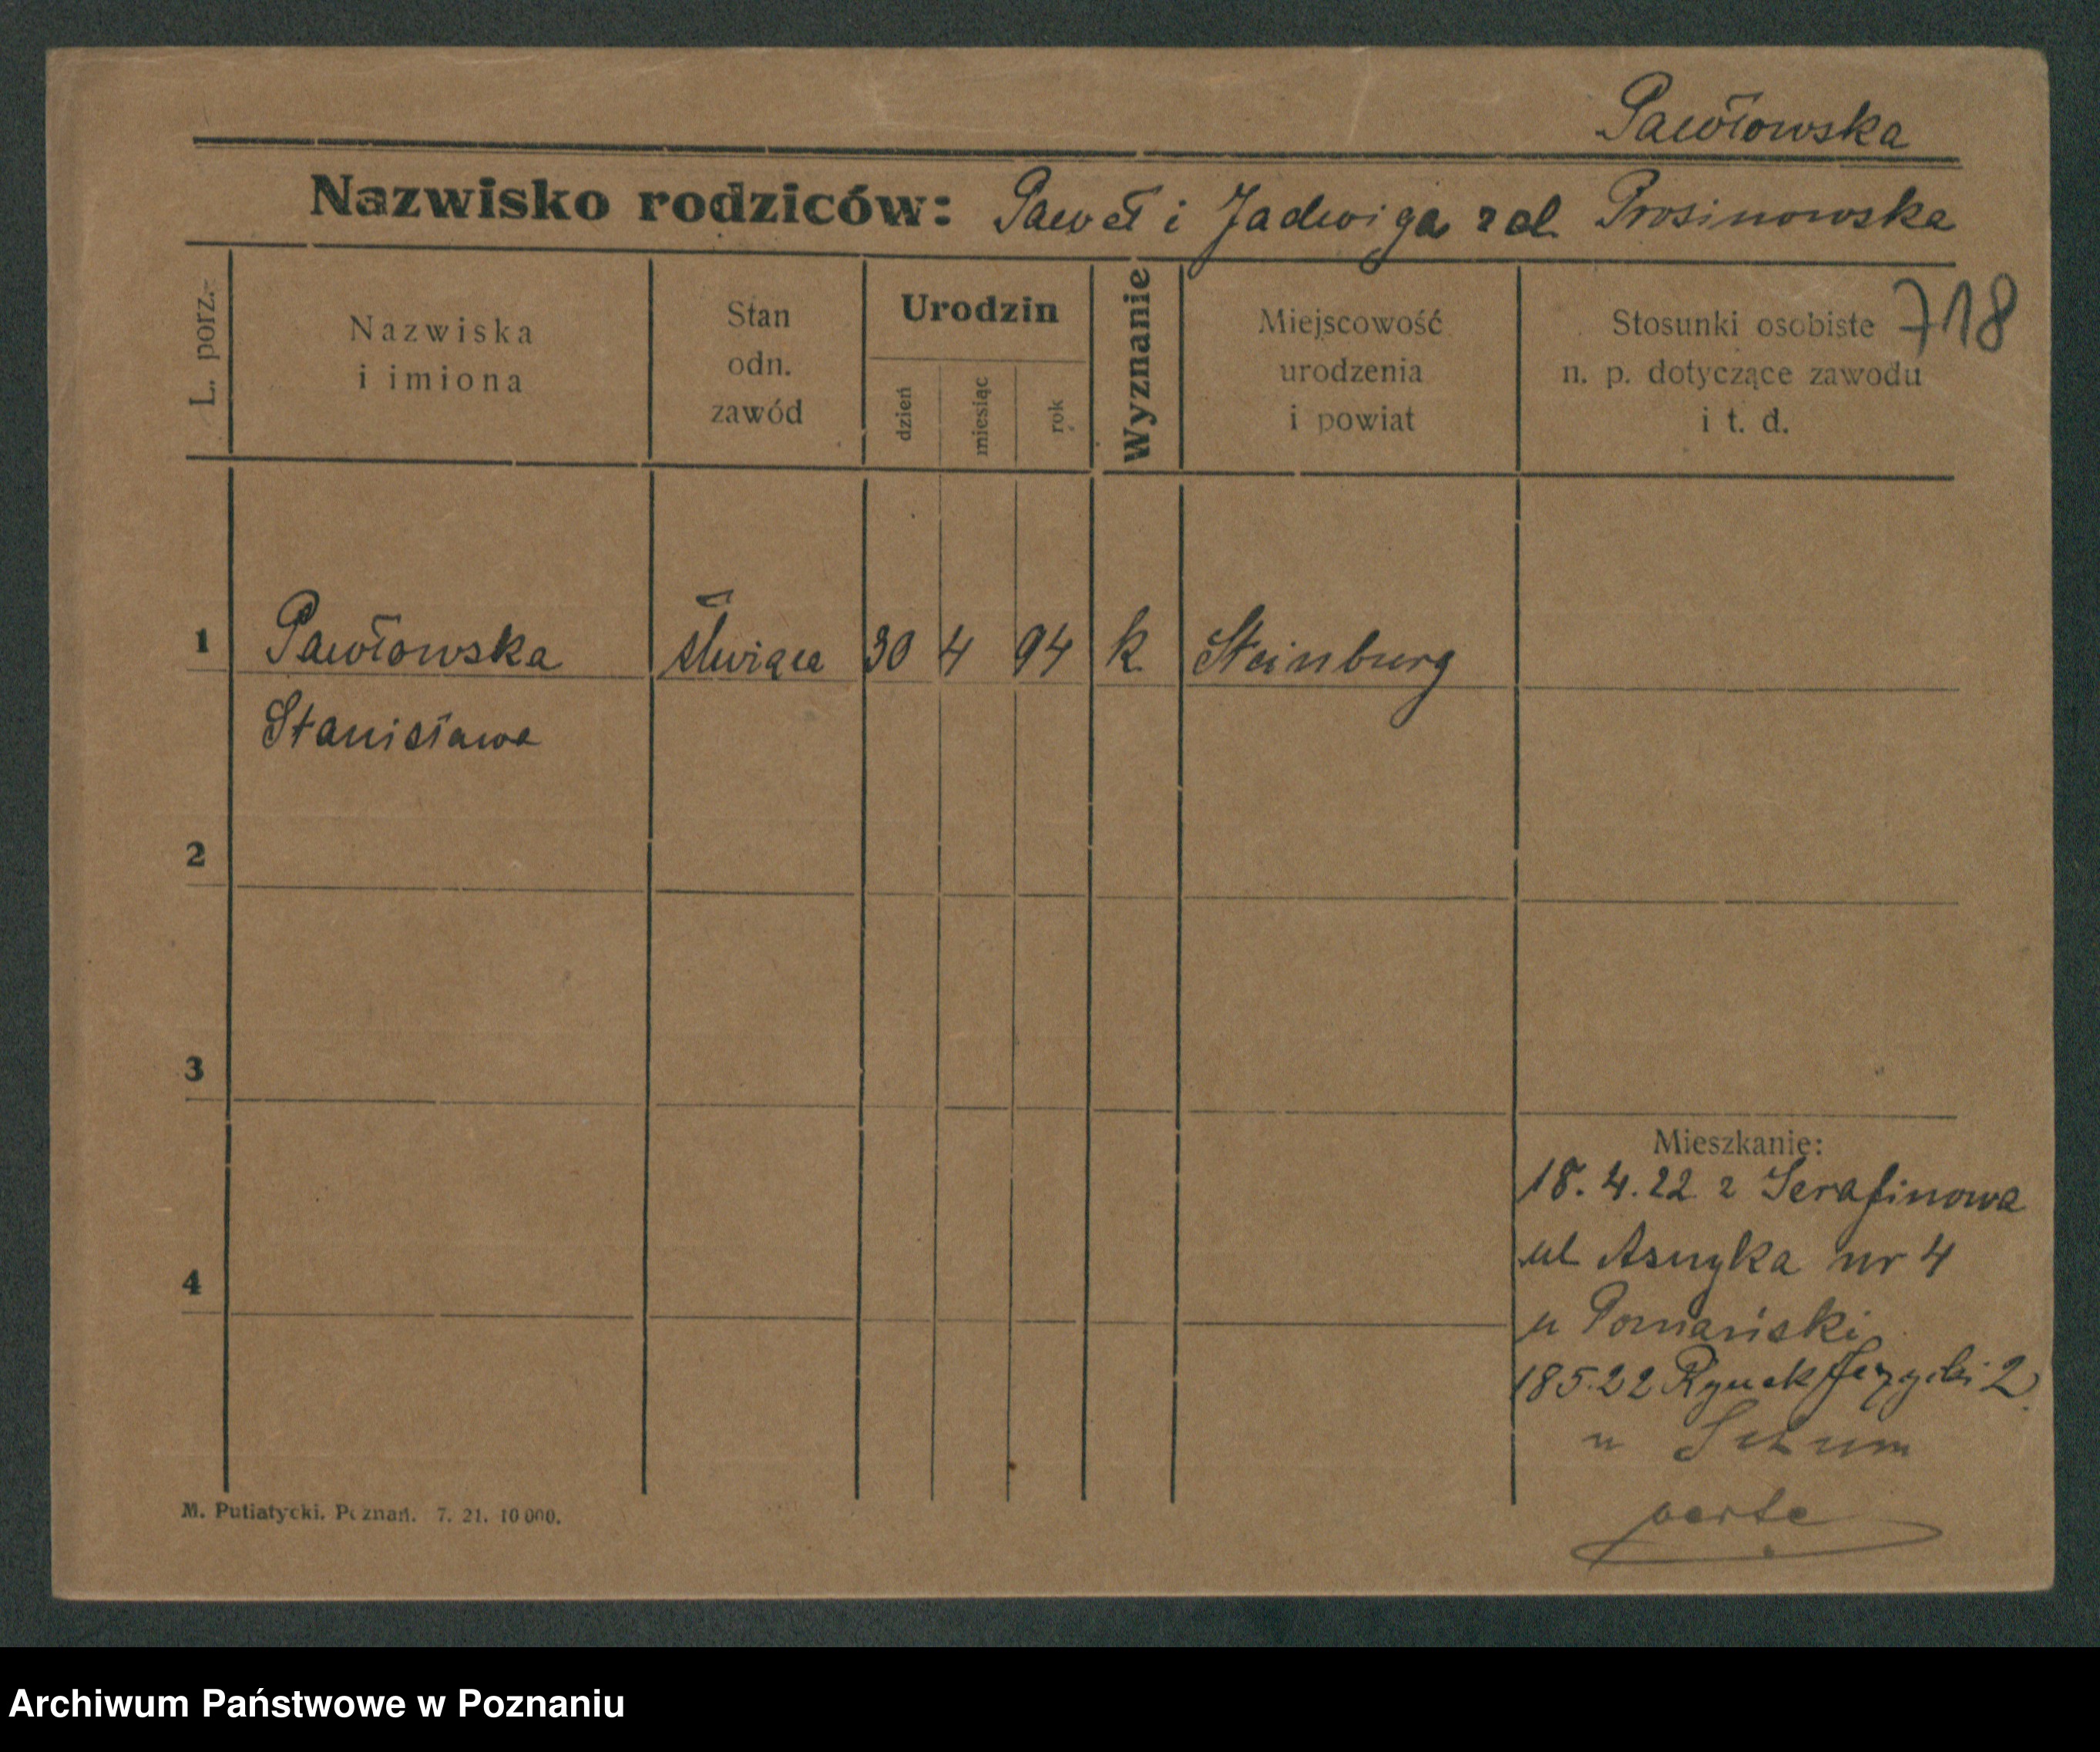 Pawłowska
Nazwisko rodziców: Paweł i Jadwiga zd. Prosinowska
718
L. porz.
Nazwiska
i imiona
Stan
odn.
zawód
Urodzin
dzień
miesiąc
rok
Wyznanie
Miejscowość
urodzenia
i powiat
Stosunki osobiste
n. p. dotyczące zawodu
i t. d.
1 Pawłowska służąca 30 4 94 k Steinburg
Stanisława
2
3
4
Mieszkanie:
18.4.22 z Serafinowa
ul Asnyka nr 4
u Pomański
18 5.22 Rynek Jeżycki 2
u
verte
M. Putiatycki, Poznań. 7. 21. 10 000.
Archiwum Państwowe w Poznaniu